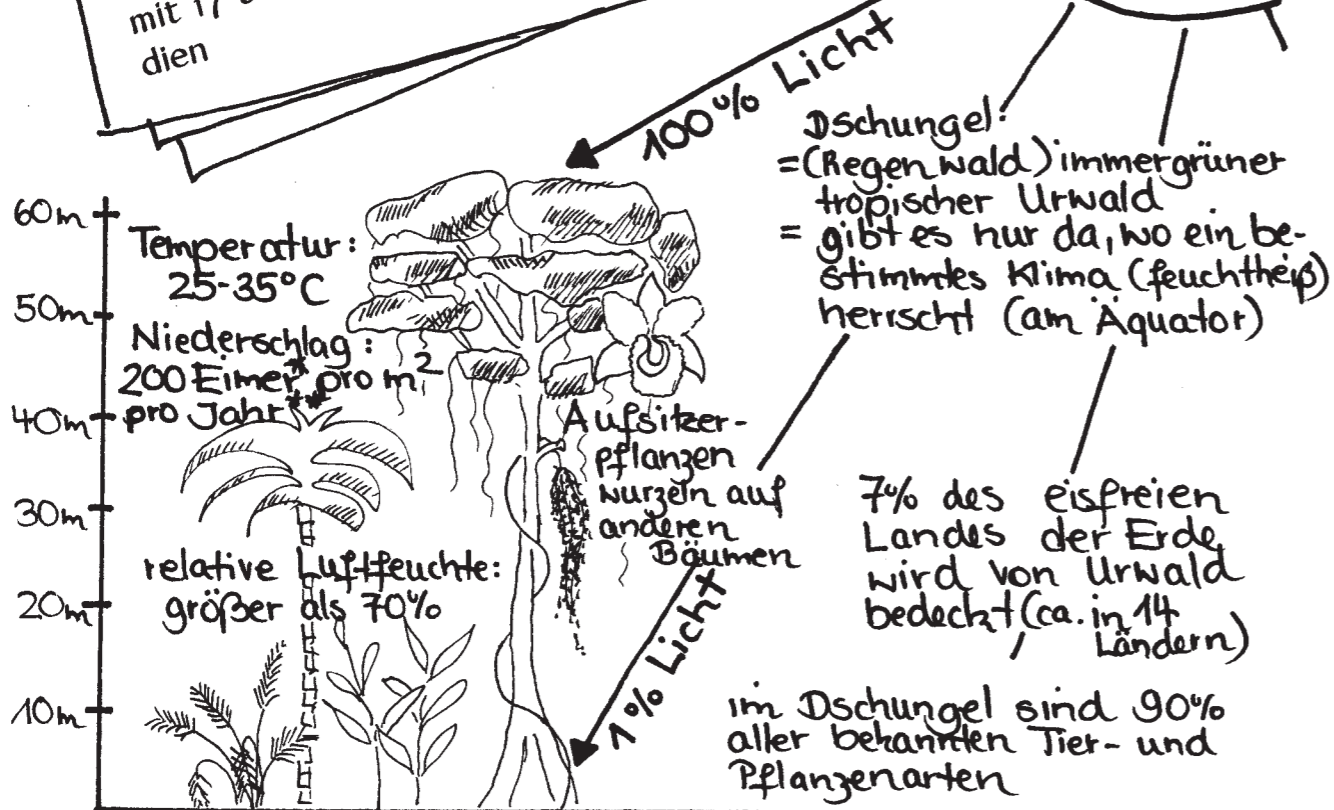 mit 17
dien
100% Licht
Dschungel:
=(Regenwald) immergrüner
tropischer Urwald
= gibt es nur da, wo ein be-
stimmtes Klima (feuchtheiß)
herrscht (am Äquator)
60m
Temperatur:
25-35°C
50m
Niederschlag:
200 Eimer* pro m²
pro Jahr**
40m
Aufsitzer-
pflanzen
wurzeln auf
anderen
Bäumen
30m
relative Luftfeuchte:
größer als 70%
20m
10m
1% Licht
7% des eisfreien
Landes der Erde
wird von Urwald
bedeckt (ca. in 14
Ländern)
im Dschungel sind 90%
aller bekannten Tier- und
Pflanzenarten